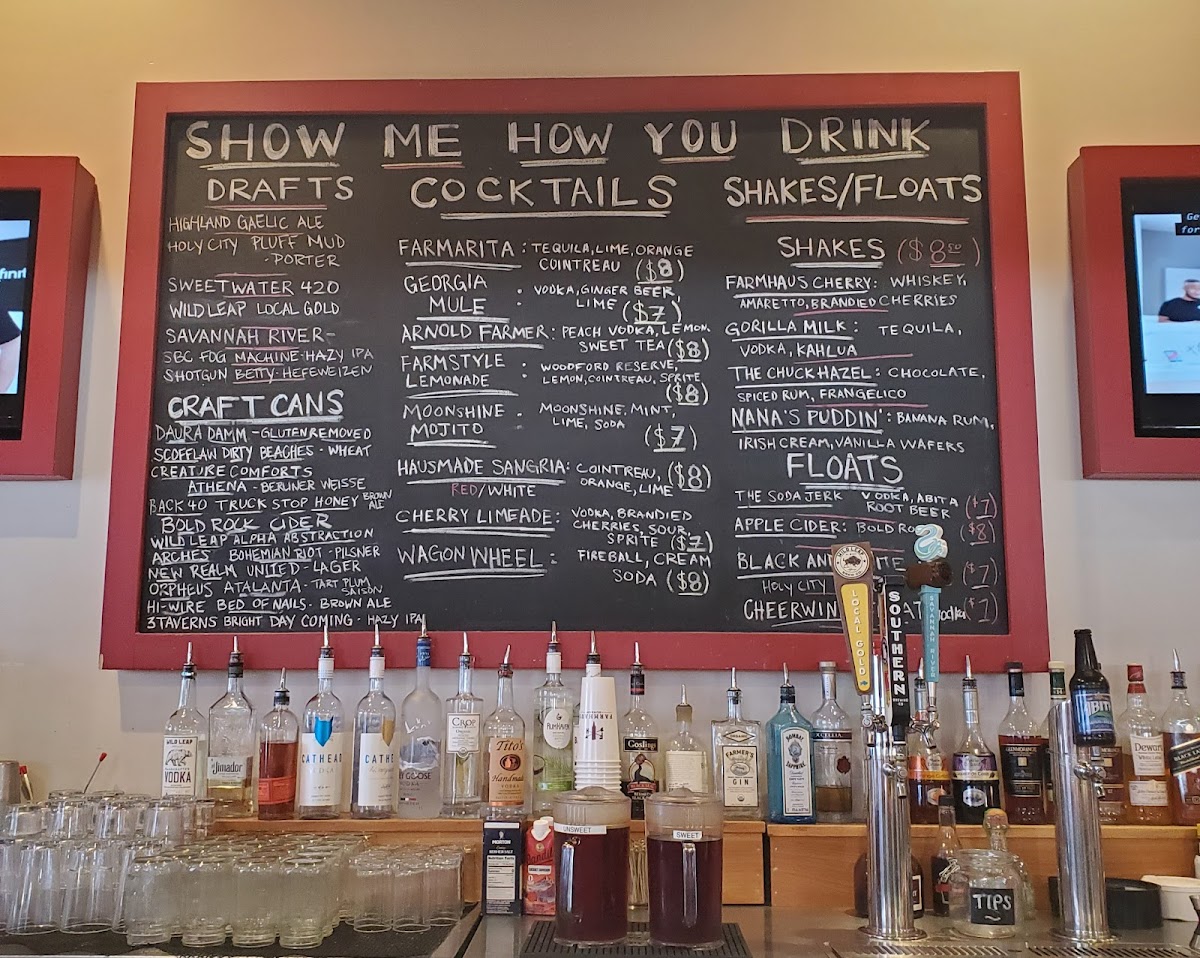 SHOW ME HOW YOU DRINK
DRAFTS
HIGHLAND GAELIC ALE
HOLY CITY PLUFF MUD
-PORTER
SWEETWATER 420
WILD LEAP LOCAL GOLD
SAVANNAH RIVER-
SBC FOG MACHINE-HAZY IPA
SHOTGUN BETTY-HEFEWEIZEN
CRAFT CANS
DAURA DAMM-GLUTEN REMOVED
SCOFFLAW DIRTY BEACHES-WHEAT
CREATURE COMFORTS
ATHENA-BERLINER WEISSE
BACK 40 TRUCK STOP HONEY BROWN
ALE
BOLD ROCK CIDER
WILD LEAP ALPHA ABSTRACTION
ARCHES BOHEMIAN RIOT-PILSNER
NEW REALM UNITED-LAGER
ORPHEUS ATALANTA-TART PLUM
SAISON
HI-WIRE BED OF NAILS-BROWN ALE
3TAVERNS BRIGHT DAY COMING-HAZY IPA
COCKTAILS
FARMARITA: TEQUILA, LIME, ORANGE
COINTREAU ($8)
GEORGIA
MULE: VODKA, GINGER BEER,
LIME ($7)
ARNOLD FARMER: PEACH VODKA, LEMON,
SWEET TEA ($8)
FARMSTYLE
LEMONADE: WOODFORD RESERVE,
LEMON, COINTREAU, SPRITE
($8)
MOONSHINE
MOJITO: MOONSHINE, MINT,
LIME, SODA
($7)
HAUSMADE SANGRIA: COINTREAU, ($8)
RED/WHITE ORANGE, LIME
CHERRY LIMEADE: VODKA, BRANDIED
CHERRIES, SOUR,
SPRITE ($7)
WAGON WHEEL: FIREBALL, CREAM
SODA ($8)
SHAKES/FLOATS
SHAKES ($8.50)
FARMHAUS CHERRY: WHISKEY,
AMARETTO, BRANDIED CHERRIES
GORILLA MILK: TEQUILA,
VODKA, KAHLUA
THE CHUCK HAZEL: CHOCOLATE,
SPICED RUM, FRANGELICO
NANA'S PUDDIN': BANANA RUM,
IRISH CREAM, VANILLA WAFERS
FLOATS
THE SODA JERK VODKA, ABITA ($7)
ROOT BEER
APPLE CIDER: BOLD RO ($8)
BLACK AN TE ($7)
HOLY CITY
CHEERWIN AT vodka ($7)
Ge
for
finit
WILD LEAP
LOCAL GOLD
SOUTHERN
SAVANNAH RIVER
WILD LEAP
VODKA
el Jimador
CATHEAD
VODKA
CATHE
GREY GOOSE
CROP
Tito's
Handmade
VODKA
RUMHAVEN
FARMHAUS
Goslings
FARMER'S
GIN
BOMBAY
SAPPHIRE
Dewar's
MORTON
UNSWEET
SWEET
TIPS
ABITA